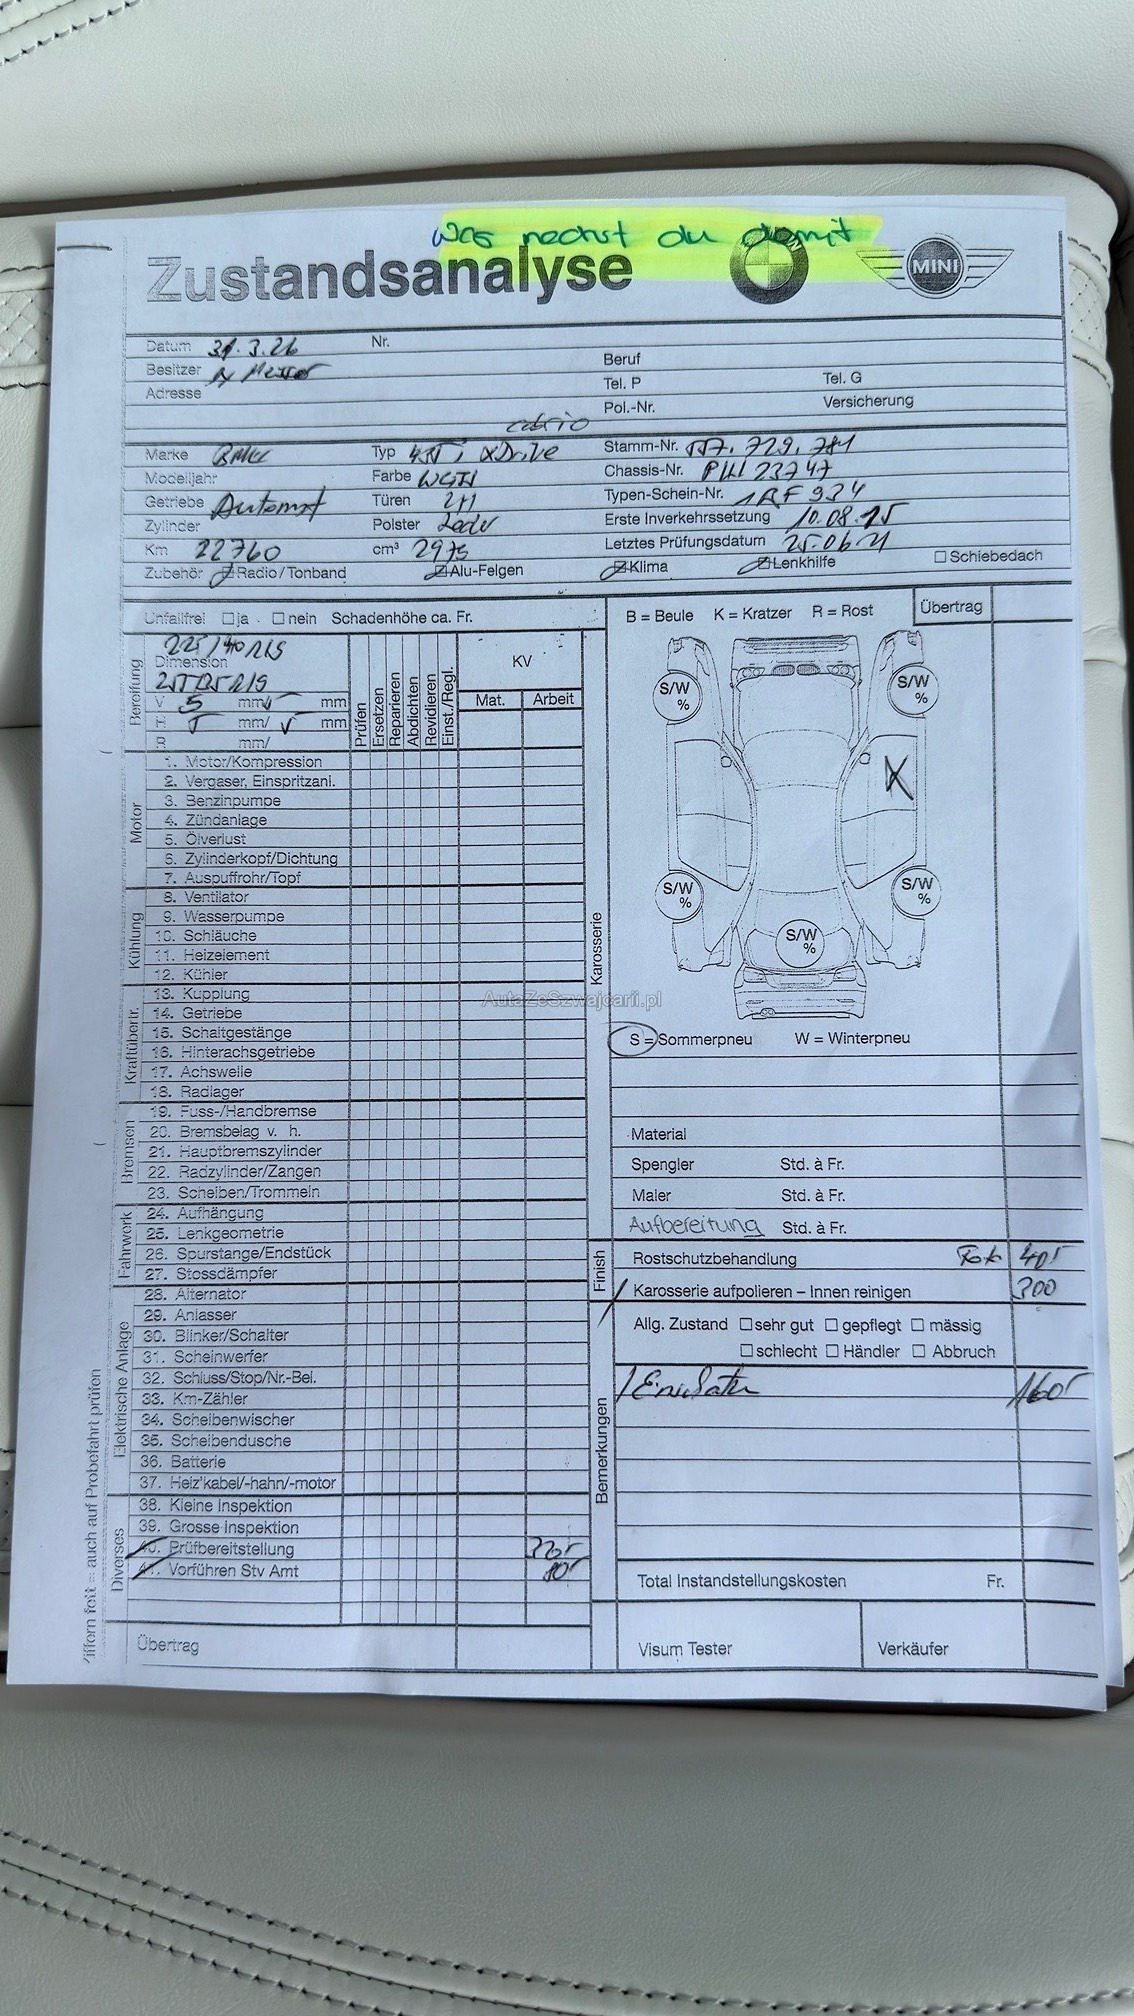 was machst du damit
Zustandsanalyse
MINI
Datum 31.3.26 Nr.
Besitzer
Beruf
Adresse
Tel. P Tel. G
Pol.-Nr. Versicherung
cabrio
Marke BMW Typ xDrive Stamm-Nr. 729. 781
Modelljahr Farbe Chassis-Nr. 23747
Getriebe Automat Türen 2+1 Typen-Schein-Nr. 1BF 934
Zylinder Polster Leder Erste Inverkehrssetzung 10.08.15
Km 22760 cm³ 2979 Letztes Prüfungsdatum 25.06.21
Zubehör: Radio/Tonband Alu-Felgen Klima Lenkhilfe Schiebedach
Unfallfrei ja nein Schadenhöhe ca. Fr.
B = Beule K = Kratzer R = Rost Übertrag
Bereifung
225/40R19
Dimension
255/35R19
V 5 mm/ mm
H 5 mm/ 5 mm
R mm/
Prüfen
Ersetzen
Reparieren
Abdichten
Revidieren
Einst./Regl.
KV
Mat. Arbeit
Motor
1. Motor/Kompression
2. Vergaser, Einspritzanl.
3. Benzinpumpe
4. Zündanlage
5. Ölverlust
6. Zylinderkopf/Dichtung
7. Auspuffrohr/Topf
Kühlung
8. Ventilator
9. Wasserpumpe
10. Schläuche
11. Heizelement
12. Kühler
Kraftübertr.
13. Kupplung
14. Getriebe
15. Schaltgestänge
16. Hinterachsgetriebe
17. Achswelle
18. Radlager
Bremsen
19. Fuss-/Handbremse
20. Bremsbelag v. h.
21. Hauptbremszylinder
22. Radzylinder/Zangen
23. Scheiben/Trommeln
Fahrwerk
24. Aufhängung
25. Lenkgeometrie
26. Spurstange/Endstück
27. Stossdämpfer
Elektrische Anlage
28. Alternator
29. Anlasser
30. Blinker/Schalter
31. Scheinwerfer
32. Schluss/Stop/Nr.-Bel.
33. Km-Zähler
34. Scheibenwischer
35. Scheibendusche
36. Batterie
37. Heiz'kabel/-hahn/-motor
Diverses
38. Kleine Inspektion
39. Grosse Inspektion
40. Prüfbereitstellung
41. Vorführen Stv Amt
Übertrag
Ziffern fett = auch auf Probefahrt prüfen
Karosserie
S/W %
S/W %
K
S/W %
S/W %
S/W %
AutaZeSzwajcarii.pl
S = Sommerpneu W = Winterpneu
Material
Spengler Std. à Fr.
Maler Std. à Fr.
Aufbereitung Std. à Fr.
Finish
Rostschutzbehandlung
Karosserie aufpolieren – Innen reinigen 300
Allg. Zustand sehr gut gepflegt mässig
schlecht Händler Abbruch
Bemerkungen
Total Instandstellungskosten Fr.
Visum Tester Verkäufer